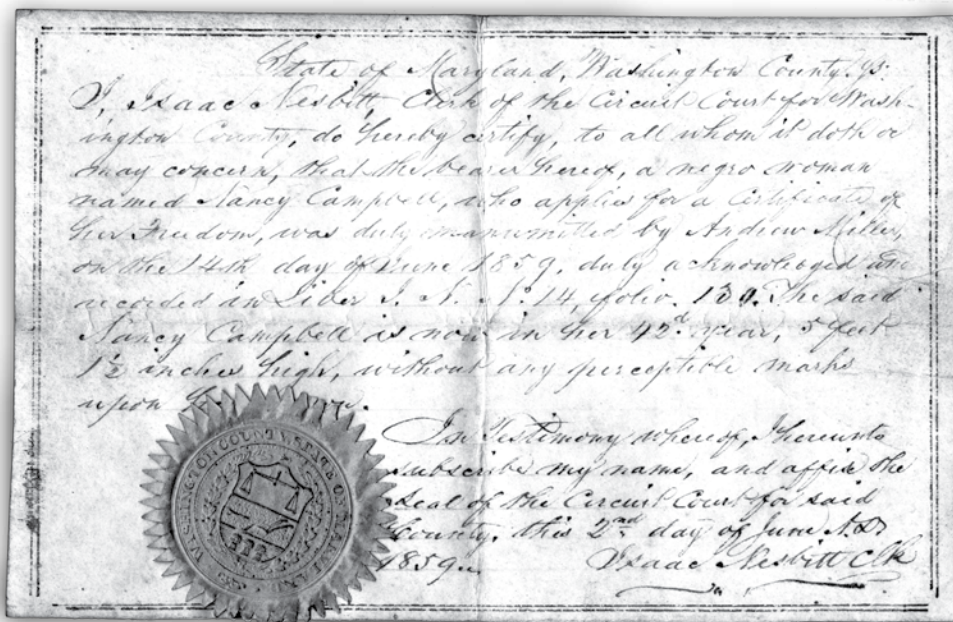 State of Maryland, Washington County, ss:
I, Isaac Nesbitt, Clerk of the Circuit Court for Wash-
ington County, do hereby certify, to all whom it doth or
may concern, that the bearer hereof, a negro woman
named Nancy Campbell, who applies for a Certificate of
her Freedom, was duly manumitted by Andrew Miller,
on the 14th day of June 1859, duly acknowledged and
recorded in Liber I. N. No. 14, folio. 130. The said
Nancy Campbell is now in her 42d. year, 5 feet
1½ inches high, without any perceptible marks
upon
In Testimony whereof, I hereunto
subscribe my name, and affix the
seal of the Circuit Court for said
County, this 2nd day of June A.D.
1859.
Isaac Nesbitt Clk
WASHINGTON COUNTY STATE OF MARYLAND